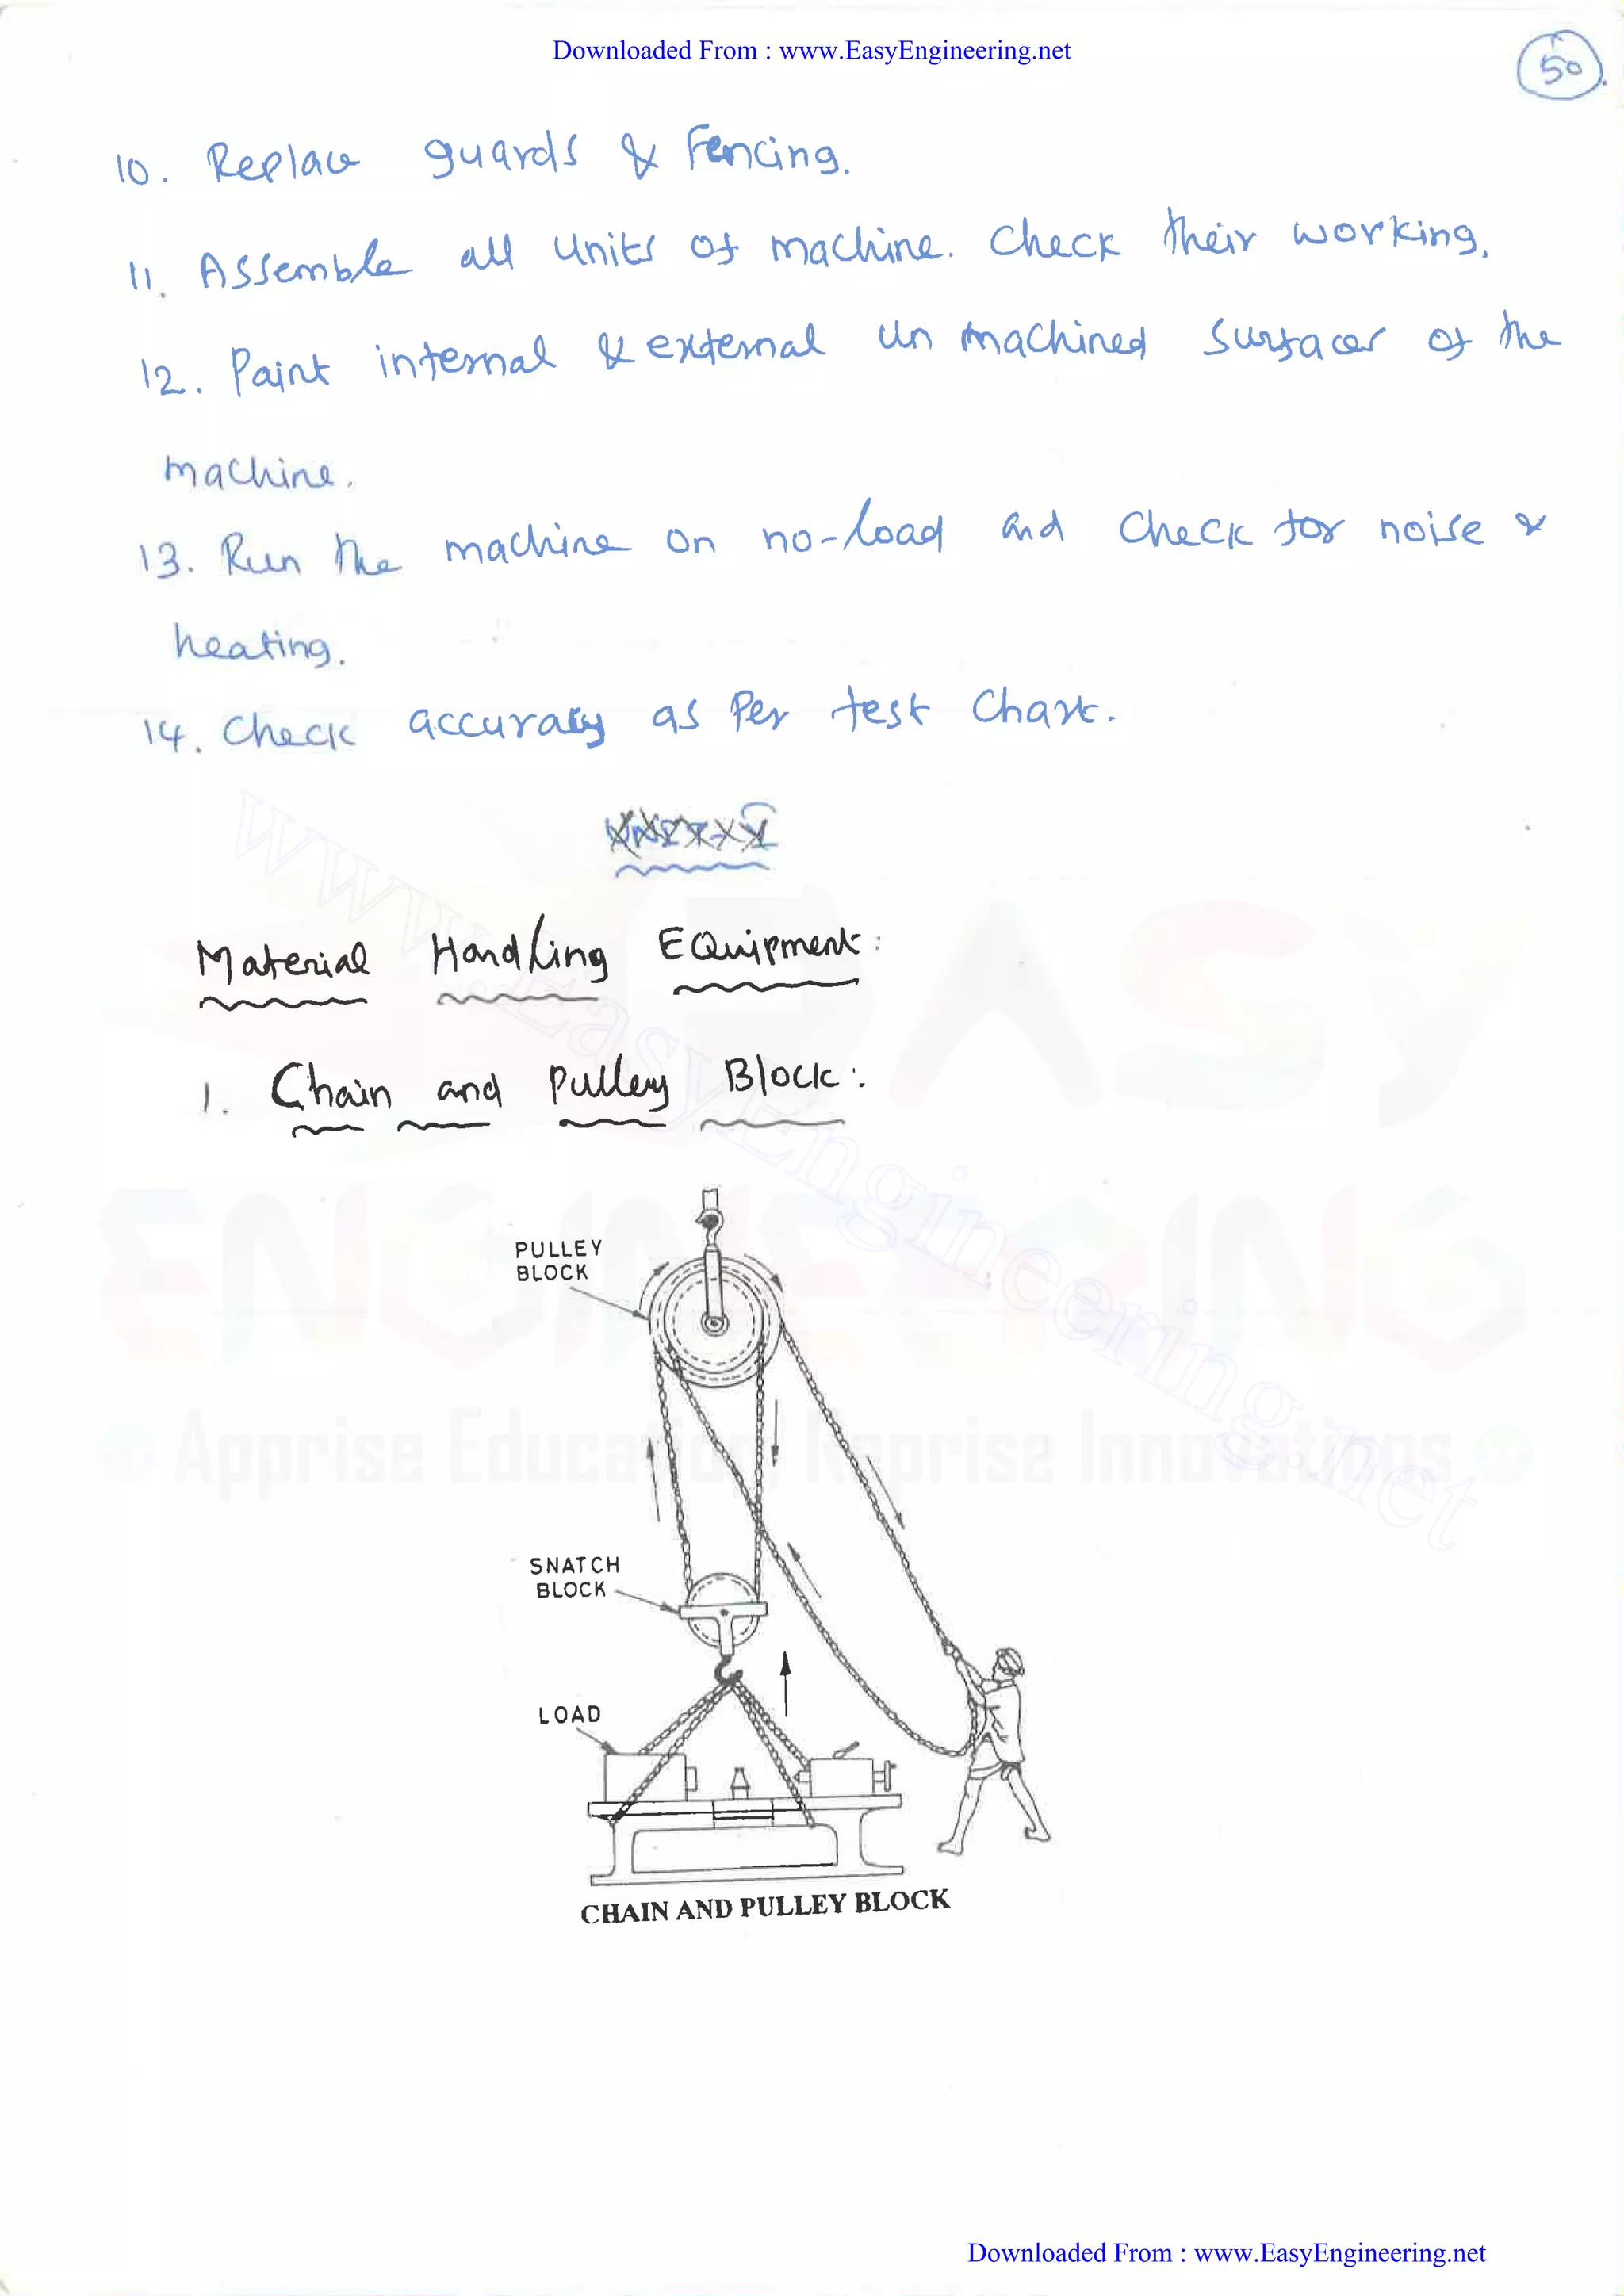 Downloaded From : www.EasyEngineering.net
50
10. Replace guards & Fencing.
11. Assemble all units of machine. Check their working.
12. Paint internal & external un machined surfaces of the
machine.
13. Run the machine on no-load and check for noise &
heating.
14. Check accuracy as per test chart.
Material Handling Equipment:
1. Chain and Pulley Block:
PULLEY
BLOCK
SNATCH
BLOCK
LOAD
CHAIN AND PULLEY BLOCK
www.EasyEngineering.net
EASY
ENGINEERING
Apprise Education, Reprise Innovations
Downloaded From : www.EasyEngineering.net